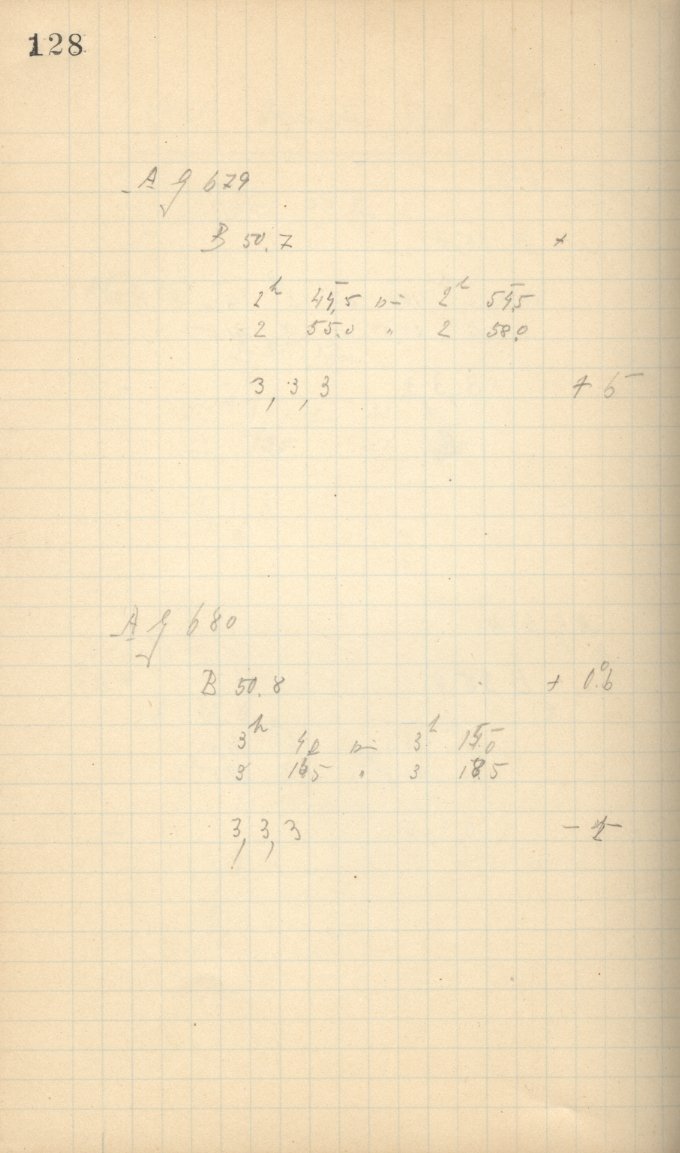 128
A G 679
B 50.7 +
2h 44,5 — 2h 54,5
2 55.0 " 2 58.0
3, 3, 3 + 6
A G 680
B 50.8 + 0.6
3h 4.0 — 3h 14.0
3 14.5 " 3 18.5
3, 3, 3 −